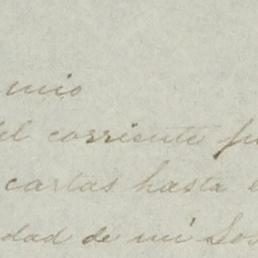 mio
el corriente
cartas hasta
dad de mi